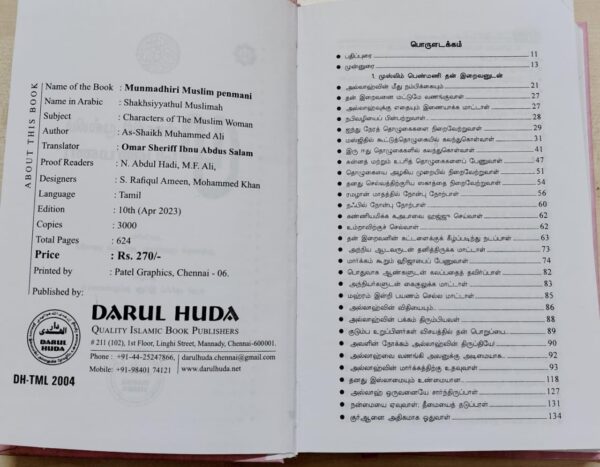 ABOUT THIS BOOK
Name of the Book : Munmadhiri Muslim penmani
Name in Arabic : Shakhsiyyathul Muslimah
Subject : Characters of The Muslim Woman
Author : As-Shaikh Muhammed Ali
Translator : Omar Sheriff Ibnu Abdus Salam
Proof Readers : N. Abdul Hadi, M.F. Ali,
Designers : S. Rafiqul Ameen, Mohammed Khan
Language : Tamil
Edition : 10th (Apr 2023)
Copies : 3000
Total Pages : 624
Price : Rs. 270/-
Printed by : Patel Graphics, Chennai - 06.
Published by:
DARUL HUDA
QUALITY ISLAMIC BOOK PUBLISHERS
# 211 (102), 1st Floor, Linghi Street, Mannady, Chennai-600001.
Phone : +91-44-25247866, darulhuda.chennai@gmail.com
Mobile: +91-98401 74121 www.darulhuda.net
DARUL HUDA
DH-TML 2004
பொருளடக்கம்
பதிப்புரை 11
முன்னுரை 13
1. முஸ்லிம் பெண்மணி தன் இறைவனுடன்
அல்லாஹ்வின் மீது நம்பிக்கையும் 21
தன் இறைவனை மட்டுமே வணங்குவாள் 27
அல்லாஹ்வுக்கு எதையும் இணையாக்க மாட்டாள் 27
நபிவழியைப் பின்பற்றுவாள் 28
ஐந்து நேரத் தொழுகைகளை நிறைவேற்றுவாள் 29
மஸ்ஜிதில் கூட்டுத்தொழுகையில் கலந்துகொள்வாள் 31
இரு ஈது தொழுகைகளில் கலந்துகொள்வாள் 41
சுன்னத் மற்றும் உபரித் தொழுகைகளைப் பேணுவாள் 47
தொழுகையை அழகிய முறையில் நிறைவேற்றுவாள் 51
தனது செல்வத்திற்குரிய ஸகாத்தை நிறைவேற்றுவாள் 54
ரமழான் மாதத்தில் நோன்பு நோற்பாள் 56
நஃபில் நோன்பு நோற்பாள் 60
கண்ணியமிக்க கஅபாவை ஹஜ்ஜு செய்வாள் 62
உம்ராவிற்குச் செல்வாள் 62
தன் இறைவனின் கட்டளைக்குக் கீழ்ப்படிந்து நடப்பாள் 63
அந்நிய ஆடவருடன் தனித்திருக்க மாட்டாள் 73
மார்க்கம் கூறும் ஹிஜாபைப் பேணுவாள் 74
பொதுவாக ஆண்களுடன் கலப்பதைத் தவிர்ப்பாள் 82
அந்நியர்களுடன் கைகுலுக்க மாட்டாள் 83
மஹ்ரம் இன்றி பயணம் செல்ல மாட்டாள் 85
அல்லாஹ்வின் விதியையும் 86
அல்லாஹ்வின் பக்கம் திரும்பியவள் 88
குடும்ப உறுப்பினர்கள் விசயத்தில் தன் பொறுப்பை 89
அவளின் நோக்கம் அல்லாஹ்வின் திருப்தியே! 90
அல்லாஹ்வை வணங்கி அவனுக்கு அடிமையாக 92
அல்லாஹ்வின் மார்க்கத்திற்கு உதவுவாள் 93
தனது இஸ்லாமையும் உண்மையான 118
அல்லாஹ் ஒருவனையே சார்ந்திருப்பாள் 127
நன்மையை ஏவுவாள்; தீமையைத் தடுப்பாள் 131
குர்ஆனை அதிகமாக ஓதுவாள் 134